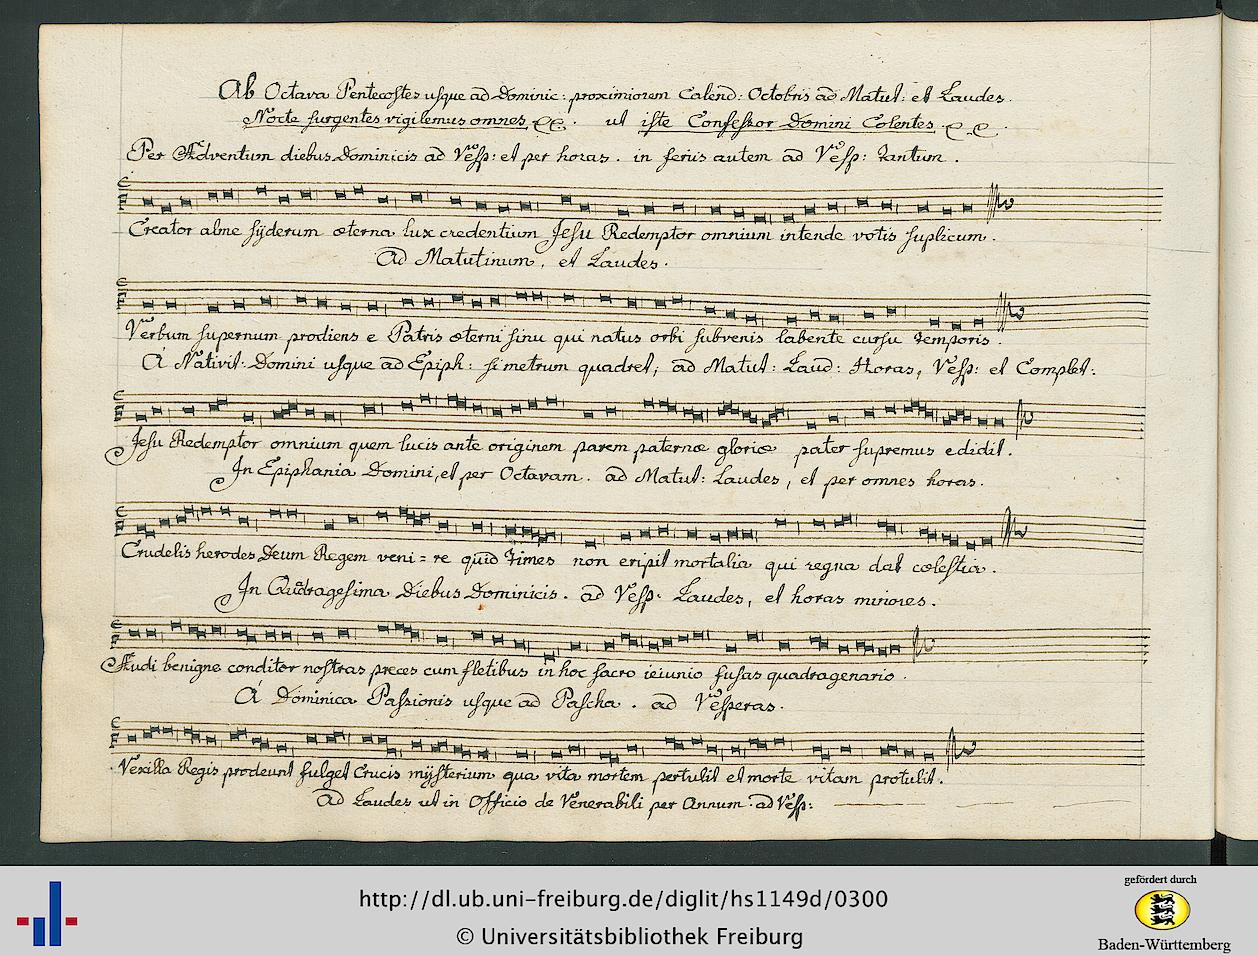 Ab Octava Pentecostes usque ad Dominic: proximiorem Calend: Octobris ad Matut: et Laudes.
Nocte surgentes vigilemus omnes &c. ut iste Confessor Domini Colentes &c.
Per Adventum diebus Dominicis ad Vesp: et per horas. in feriis autem ad Vesp: tantum.
Creator alme sÿderum æterna lux credentium Jesu Redemptor omnium intende votis suplicum.
Ad Matutinum, et Laudes.
Verbum supernum prodiens e Patris æterni sinu qui natus orbi subvenis labente cursu temporis.
A Nativit: Domini usque ad Epiph: si metrum quadret, ad Matut: Laud: Horas, Vesp: et Complet:
Jesu Redemptor omnium quem lucis ante originem parem paternæ gloriæ pater supremus edidit.
In Epiphania Domini, et per Octavam. ad Matut: Laudes, et per omnes horas.
Crudelis herodes Deum Regem veni=re quid times non eripit mortalia qui regna dat cælestia.
In Quadragesima Diebus Dominicis. ad Vesp: Laudes, et horas minores.
Audi benigne conditor nostras preces cum fletibus in hoc sacro ieiunio fusas quadragenario.
A Dominica Passionis usque ad Pascha. ad Vesperas.
Vexilla Regis prodeunt fulget Crucis mÿsterium qua vita mortem pertulit et morte vitam protulit.
Ad Laudes ut in Officio de Venerabili per Annum. ad Vesp:
http://dl.ub.uni-freiburg.de/diglit/hs1149d/0300
© Universitätsbibliothek Freiburg
gefördert durch
Baden-Württemberg